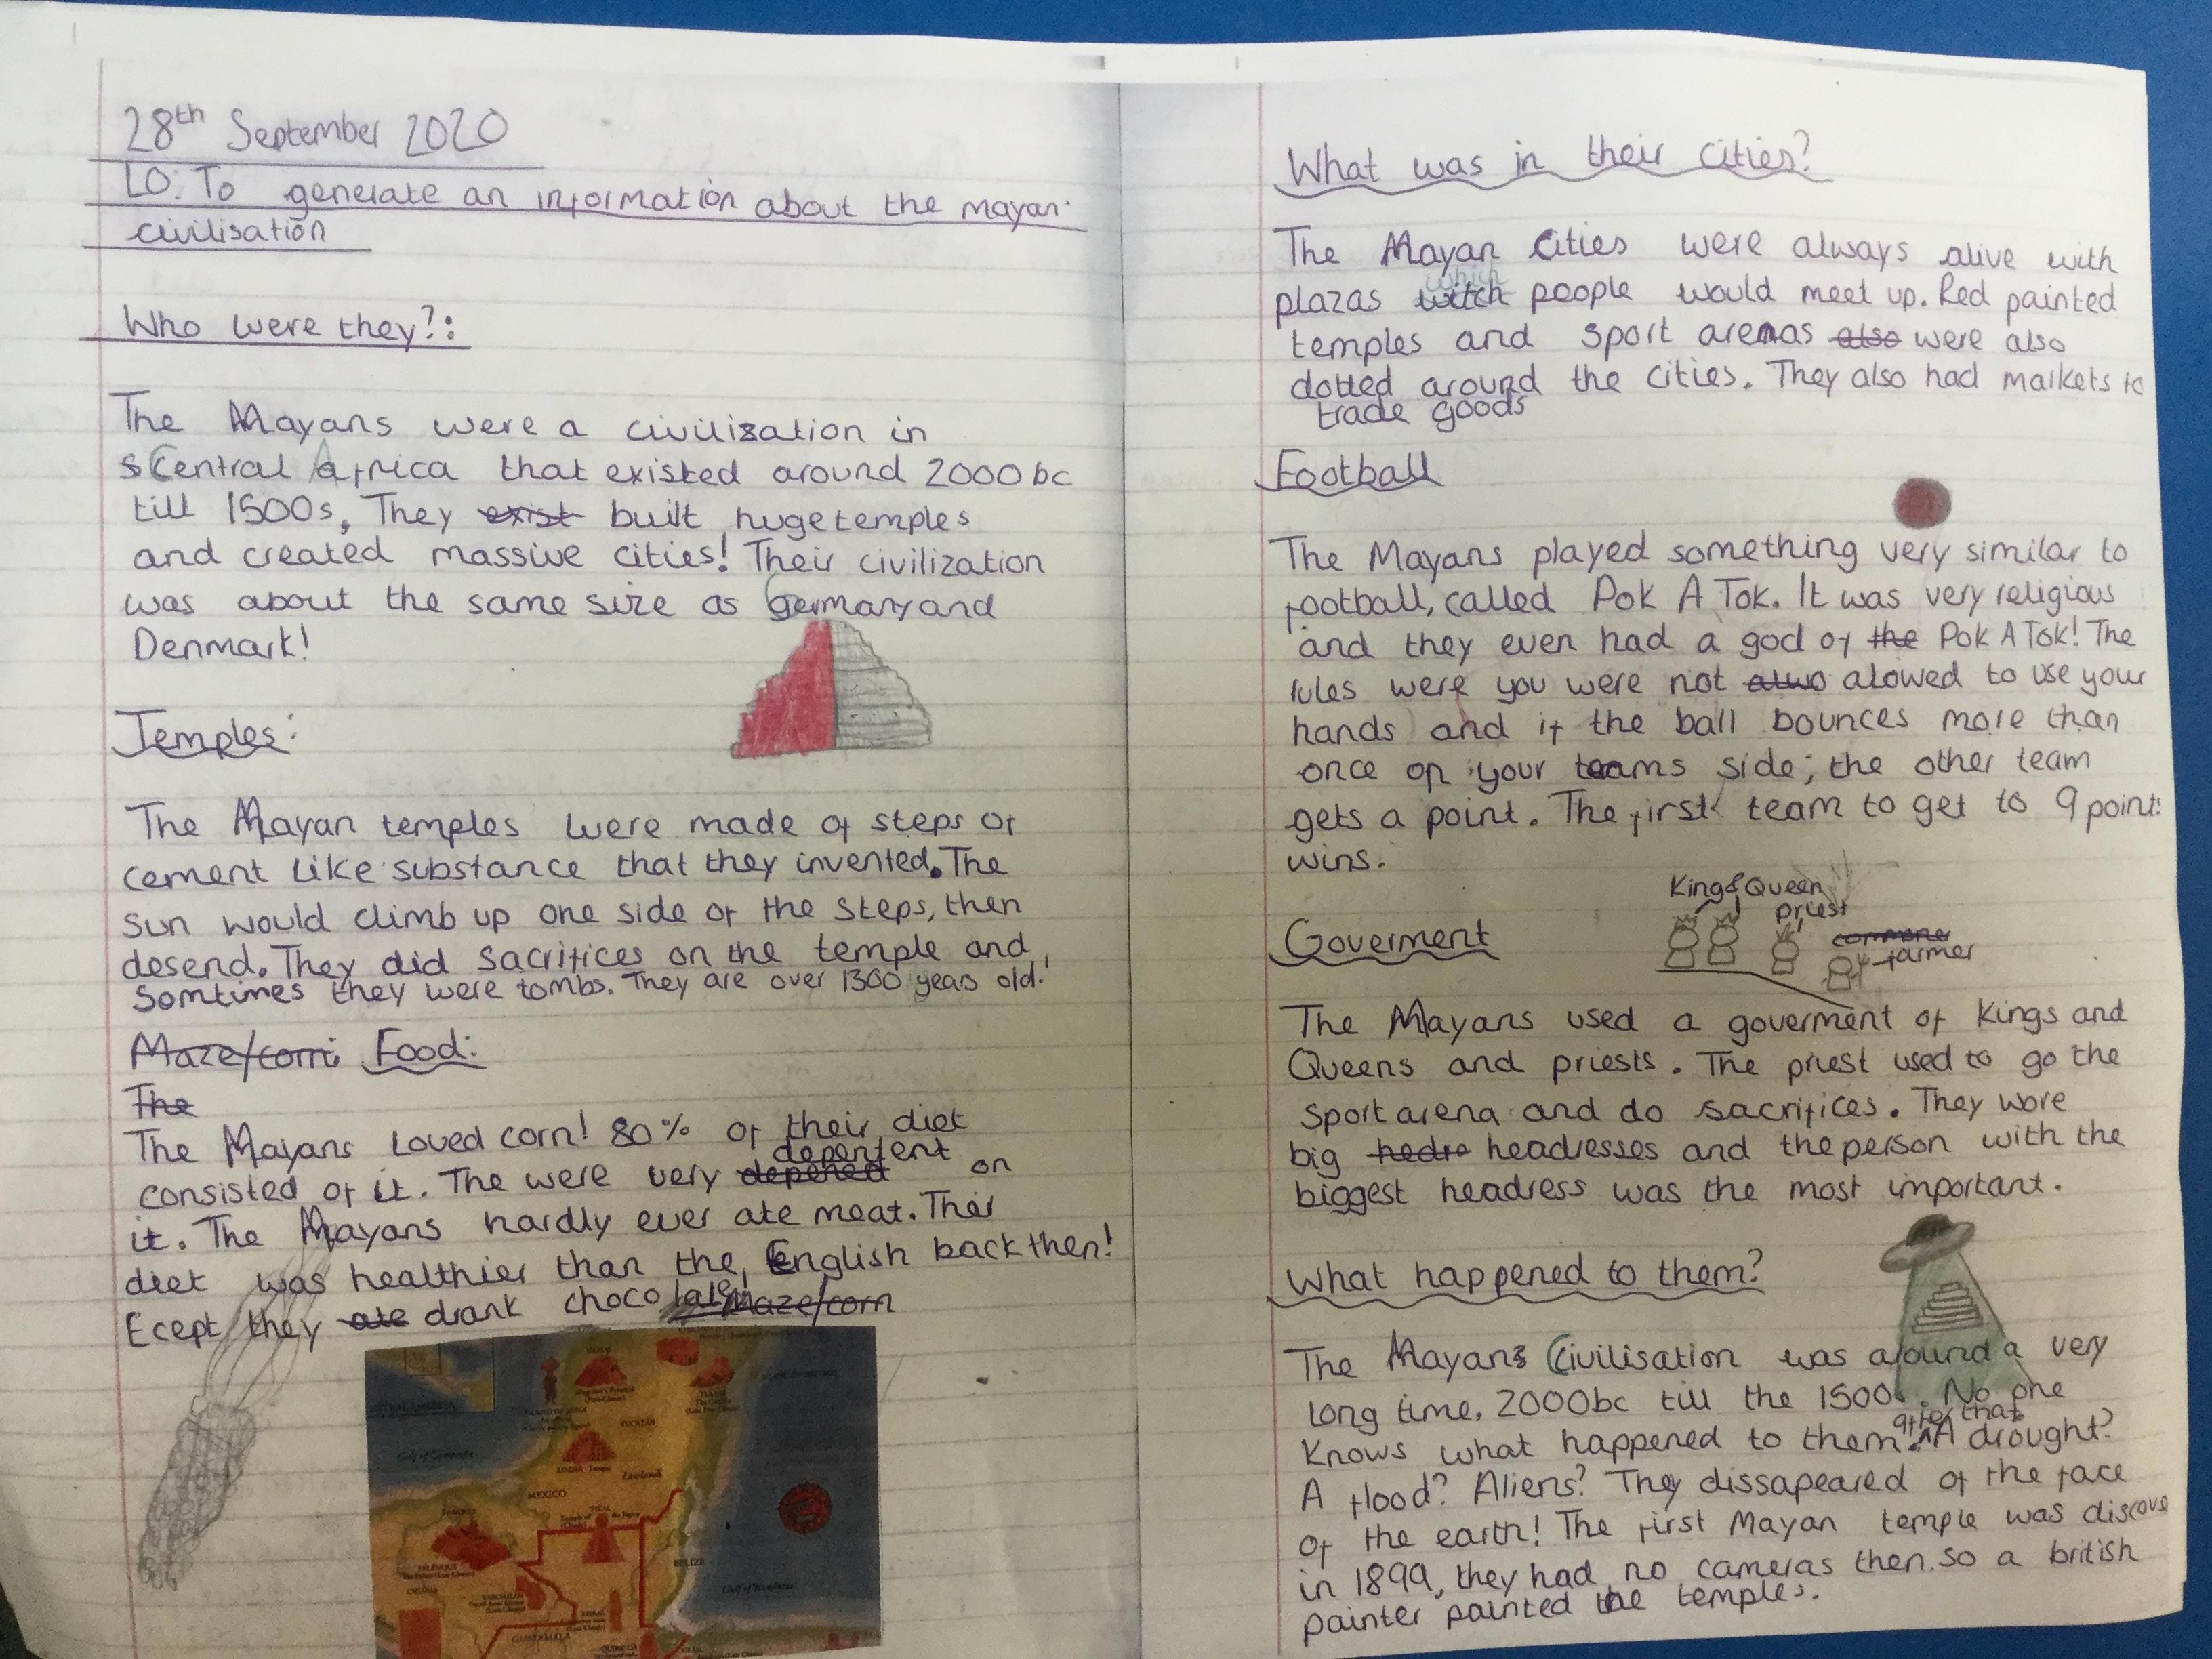 28th September 2020
LO: To generate an information about the mayan
civilisation
Who were they?:
The Mayans were a civilization in
Central Africa that existed around 2000bc
till 1500s. They exist built huge temples
and created massive cities! Their civilization
was about the same size as Germany and
Denmark!
Temples:
The Mayan temples were made of steps of
cement like substance that they invented. The
sun would climb up one side of the steps, then
desend. They did sacrifices on the temple and
Somtimes they were tombs. They are over 1300 years old!
Maze/corn: Food:
The
The Mayans loved corn! 80% of their diet
depentent
consisted of it. The were very depened on
it. The Mayans hardly ever ate meat. Thier
diet was healthier than the English back then!
Ecept they ate drank chocolate, Maze/corn
MEXICO
Lowlands
YUCATAN
TIKAL
BELIZE
GUATEMALA
Gulf of Campeche
Gulf of Honduras
What was in their cities?
The Mayan Cities were always alive with
which
plazas witch people would meet up. Red painted
temples and sport arenas also were also
dotted around the cities. They also had markets to
trade goods
Football
The Mayans played something very similar to
football, called Pok A Tok. It was very religious
and they even had a god of the Pok A Tok! The
rules were you were not aluo alowed to use your
hands and if the ball bounces more than
once on your teams side; the other team
gets a point. The first team to get to 9 points
wins.
King & Queen
priest
commone
farmer
Goverment
The Mayans used a goverment of Kings and
Queens and priests. The priest used to go the
sport arena and do sacrifices. They wore
big hedre headresses and the person with the
biggest headress was the most important.
What happened to them?
The Mayans Civilisation was around a very
long time, 2000bc till the 1500s. No one
after that
knows what happened to them. A drought?
A flood? Aliens? They dissapeared of the face
of the earth! The first Mayan temple was discove
in 1899, they had no cameras then. So a british
painter painted the temples.